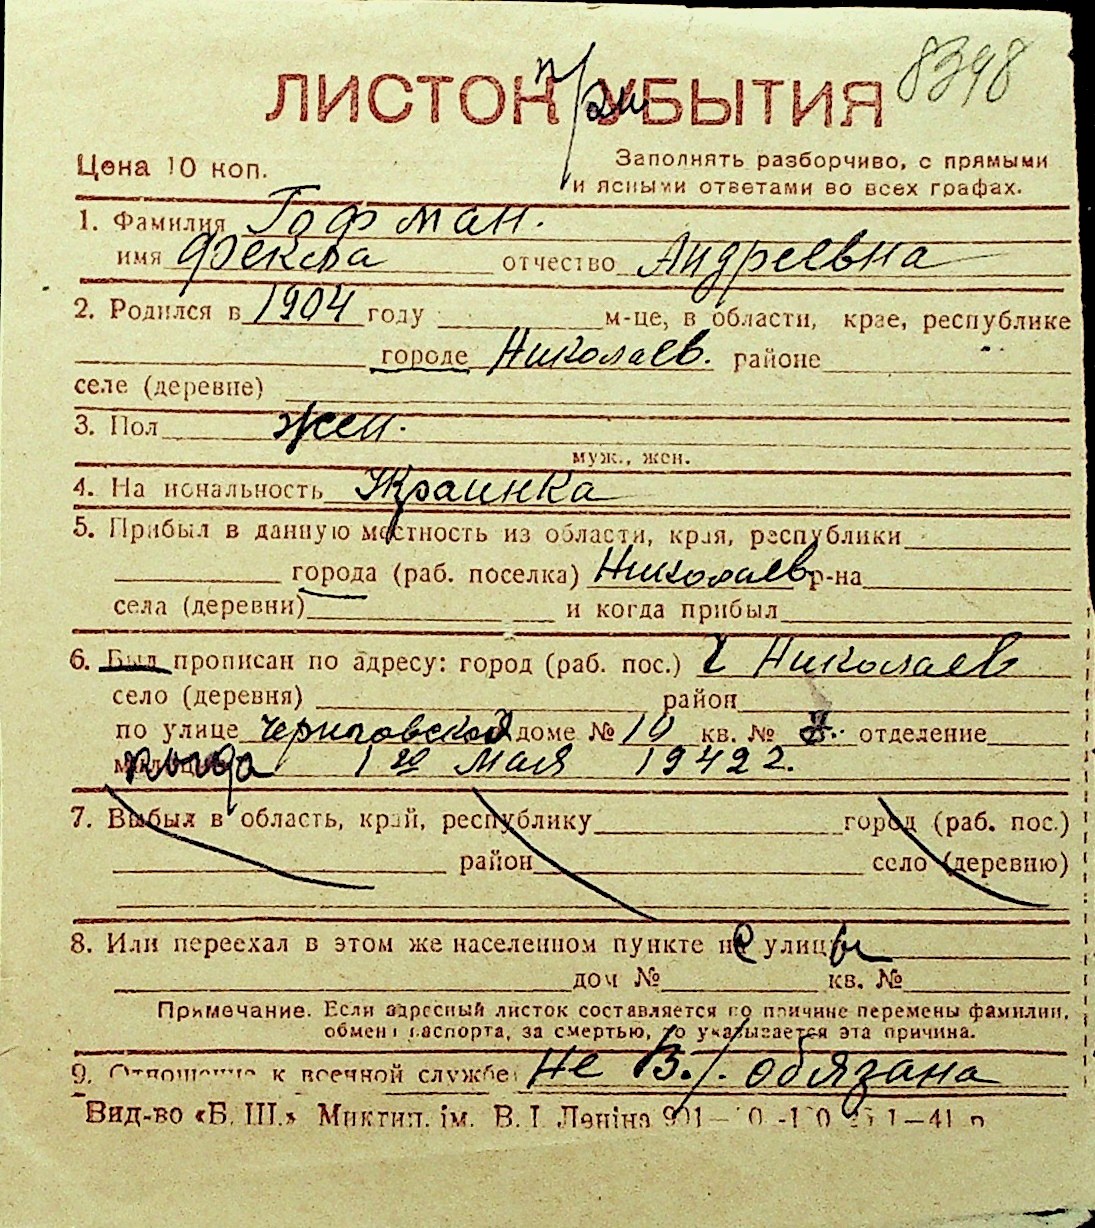 8398
ЛИСТОК при УБЫТИЯ
Цена 10 коп.
Заполнять разборчиво, с прямыми
и ясными ответами во всех графах.
1. Фамилия Гофман.
имя Фекла отчество Андреевна
2. Родился в 1904 году м-це, в области, крае, республике
городе Николаев. районе
селе (деревне)
3. Пол жен.
муж., жен.
4. На иональность Украинка
5. Прибыл в данную местность из области, края, республики
города (раб. поселка) Николаев р-на
села (деревни) и когда прибыл
6. Был прописан по адресу: город (раб. пос.) г Николаев
село (деревня) район
по улице Черниговской доме № 10 кв. № отделение
1го мая 1942 г.
7. Выбыл в область, край, республику город (раб. пос.)
район село (деревню)
8. Или переехал в этом же населенном пункте не улицы
дом № кв. №
Примечание. Если адресный листок составляется по причине перемены фамилии,
обмена паспорта, за смертью, то указывается эта причина.
9. Отношение к военной службе: не В./обязана
Вид-во «Б. Ш.» Миктип. ім. В. І. Леніна